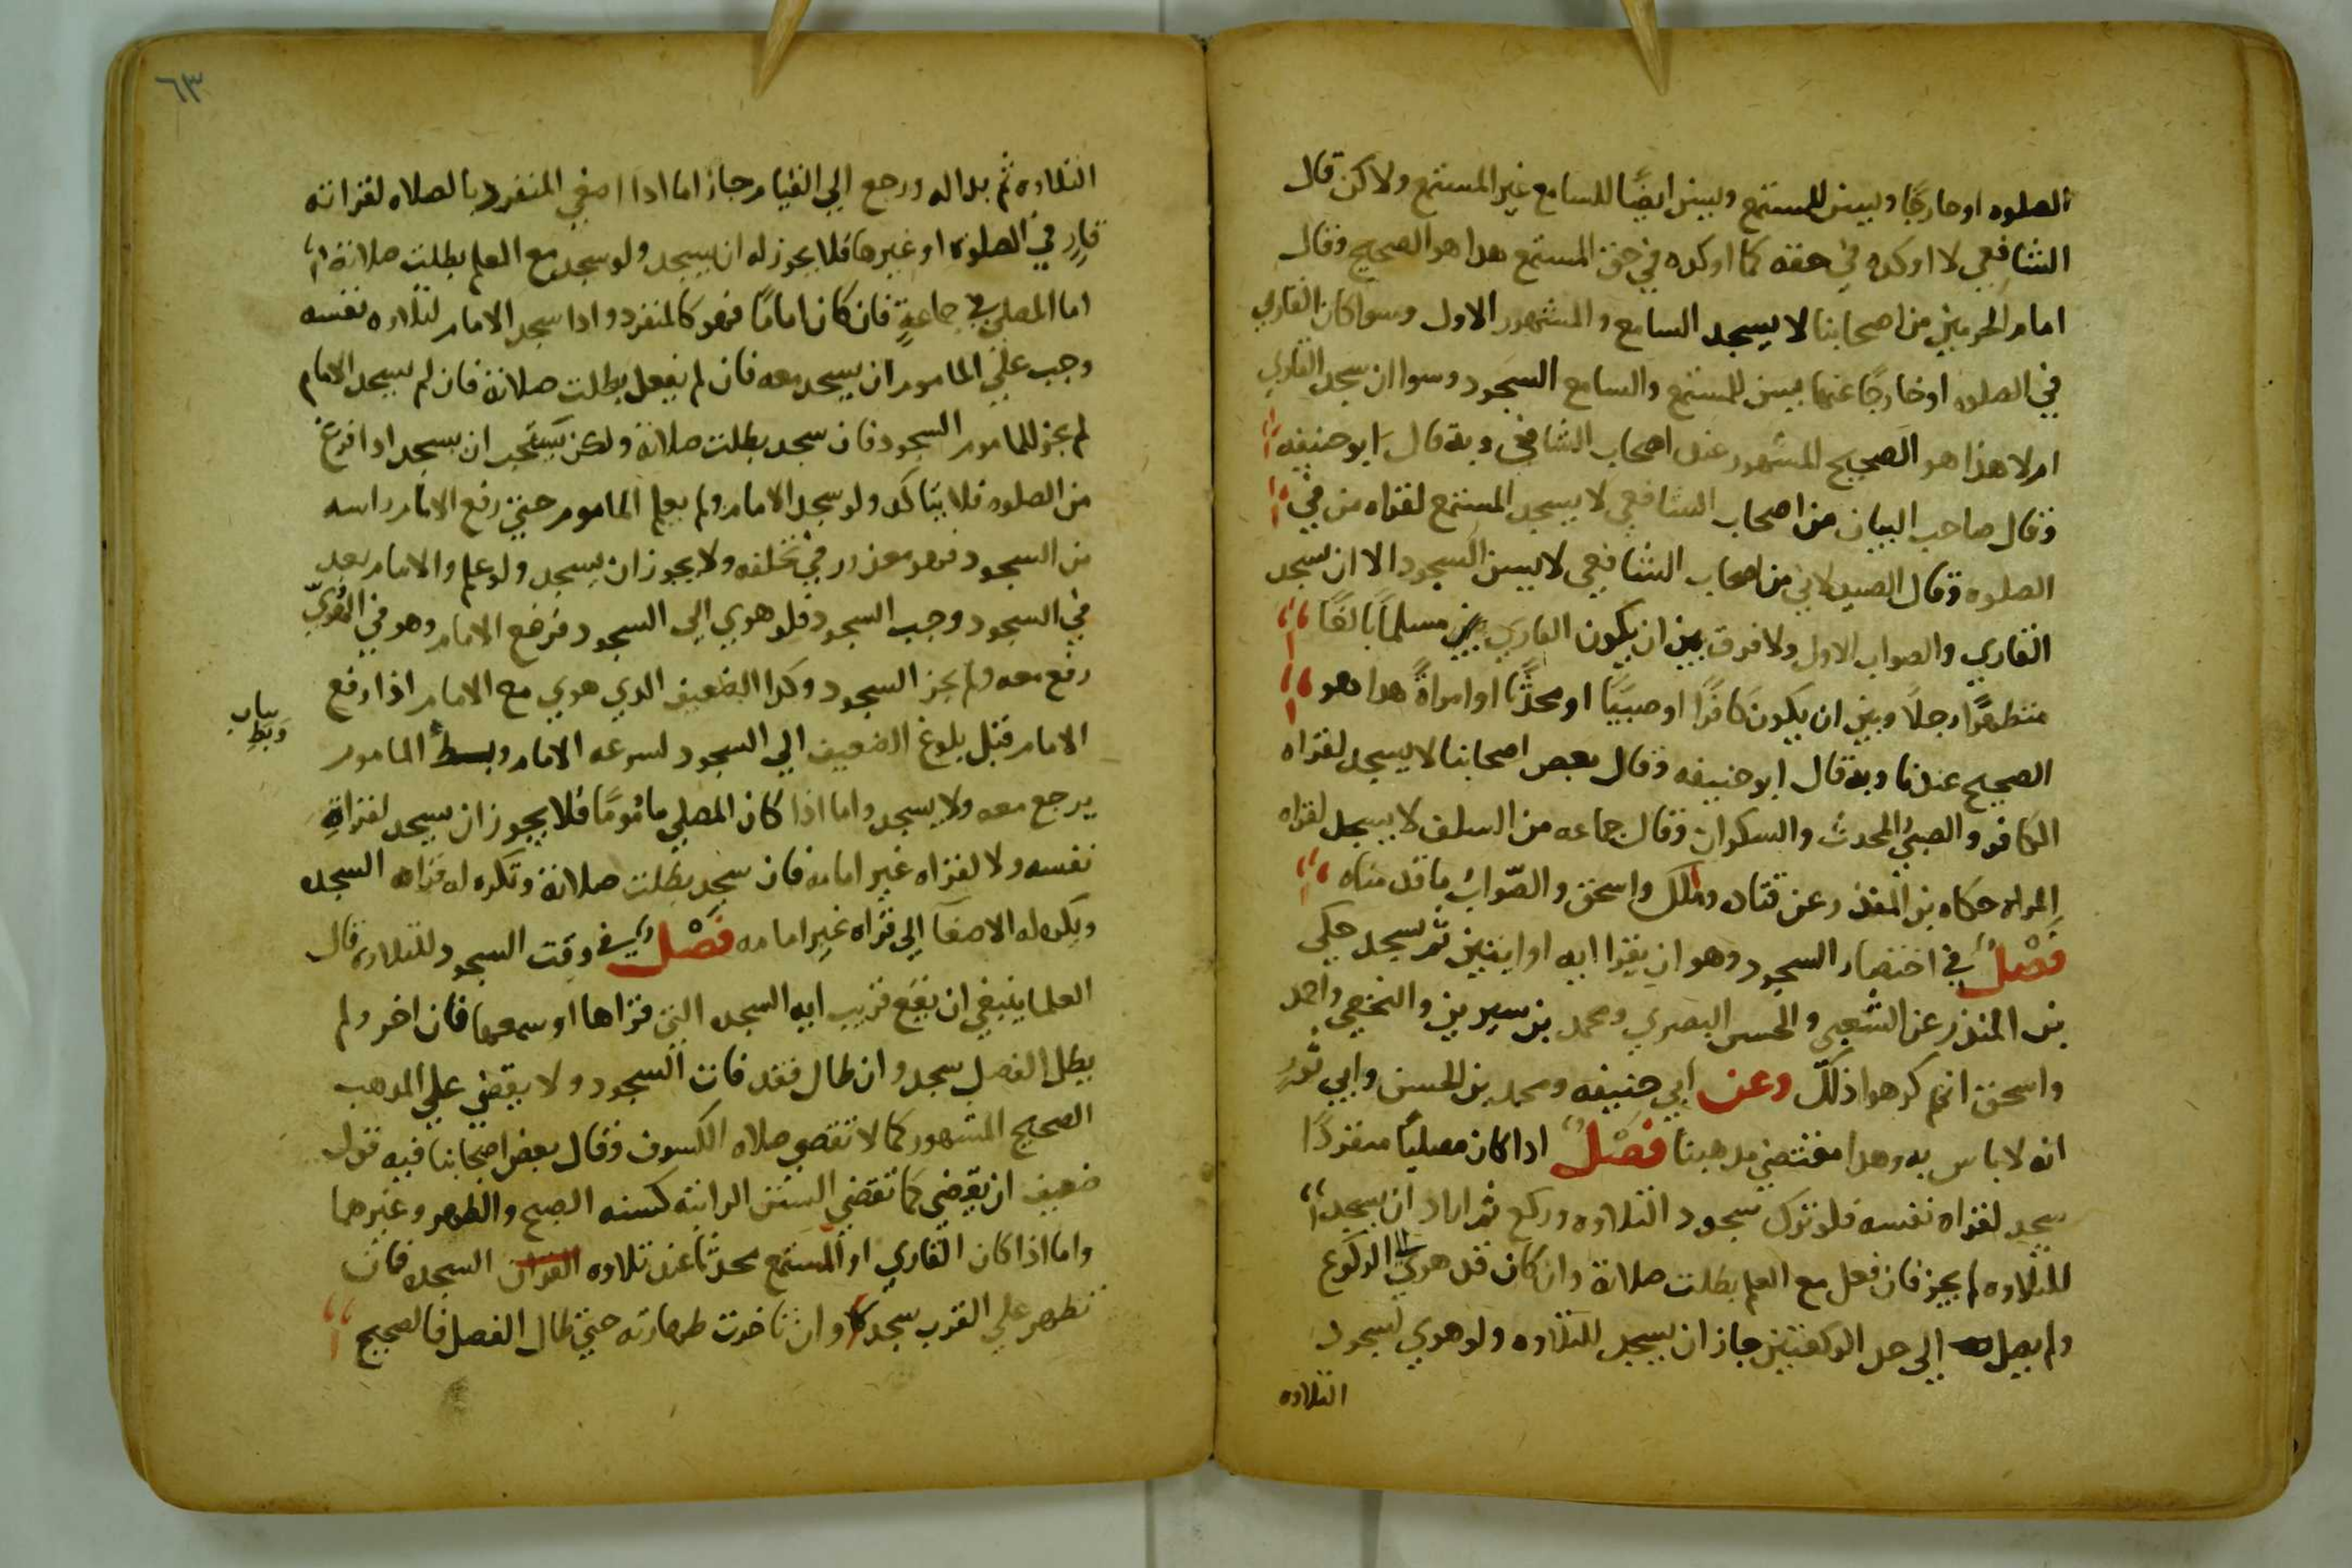 الصلوه او خارجًا ويسن للمستمع ويسن ايضًا للسامع غير المستمع ولاكن قال
الشافعي لا اوكده في حقه كما اوكده في حق المستمع هدا هو الصحيح وقال
امام الحرمين من اصحابنا لا يسجد السامع والمشهور الاول وسوا كان القاري
في الصلوه او خارجًا عنها يسن للمستمع والسامع السجود وسوا ان سجد القاري
ام لا هذا هو الصحيح المشهور عند اصحاب الشافعي وبه قال ابو حنيفه
وقال صاحب البيان من اصحاب الشافعي لا يسجد المستمع لقراه من في
الصلوه وقال الصيدلاني من اصحاب الشافعي لا يسن السجود الا ان سجد
القاري والصواب الاول ولا فرق بين ان يكون القاري مسلمًا بالغًا
متطهرًا رجلًا وبين ان يكون كافرًا او صبيًا او محدثًا او امراةً هدا هو
الصحيح عندنا وبه قال ابو حنيفه وقال بعص اصحابنا لا يسجد لقراه
الكافر والصبي المحدث والسكران وقال جماعه من السلف لا يسجد لقراه
المراه حكاه بن المنذر عن قتاده وملك واسحق والصّواب ما قدمناه
فَصْلٌ في اختصار السجود وهو ان يقرا ايه او ايتين ثم يسجد حكى
بن المنذر عن الشعبي والحسن البصري ومحمد بن سيرين والنخعي واحمد
واسحق انهم كرهوا ذلك وعن ابي حنيفه ومحمد بن الحسن وابي ثورٍ
انه لا باس به وهدا مقتضي مدهبنا فَصْلٌ ادا كان مصليًا منفردًا
سجد لقراه نفسه فلو ترك سجود التلاوه وركع ثم اراد ان يسجد
للتلاوه لم يجز فان فعل مع العلم بطلت صلاته وان كان قد هوي الى الركوع
ولم يصل الى حد الركعتين جاز ان يسجد للتلاوه ولو هوي لسجود
التلاوه
٦٣
التلاوه ثم بدا له ورجع الي القيام جاز اما ادا اصغي المنفرد بالصلاه لقراته
قارٍ في الصلوة او غيرها فلا يجوز له ان يسجد ولو سجد مع العلم بطلت صلاته
اما المصلي في جماعةٍ فان كان امامًا فهو كالمنفرد وادا سجد الامام لتلاوه نفسه
وجب علي الماموم ان يسجد معه فان لم يفعل بطلت صلاته فان لم يسجد الامام
لم يجز للماموم السجود فان سجد بطلت صلاته ولكن يستحب ان يسجد ادا فرغ
من الصلوه فلا يتاكد ولو سجد الامام ولم يعلم الماموم حتي رفع الامام راسه
من السجود فهو معذور في تخلفه ولا يجوز ان يسجد ولو علم والامام بعد
في السجود وجب السجود فلو هوي الى السجود فرفع الامام وهو في الهُويّ
رفع معه ولم يجز السجود وكدا الضعيف الدي هوي مع الامام اذا رفع
الامام قبل بلوغ الضعيف الي السجود لسرعه الامام وبسطُ الماموم
بيان
وبَطِ
يرجع معه ولا يسجد واما اذا كان المصلي مامُومًا فلا يجوز ان يسجد لقراةِ
نفسه ولا لقراه غير امامه فان سجد بطلت صلاته وتكره له قراه السجده
ويكره له الاصغا الي قراه غير امامه فَصْلٌ في وقت السجود للتلاوه قال
العلما ينبغي ان يقع قريب ايه السجده التي قراها او سمعها فان اخر ولم
يطل الفصل سجد وان طال فقد فات السجود ولا يقضي علي المدهب
الصحيح المشهور كما لا تقصي صلاه الكسوف وقال بعض اصحابنا فيه قول
ضعيف ان يقضي كما تقضي السُنن الراتبه كسنه الصبح والظهر وغيرهما
واما اذا كان القاري او المستمع محدثًا عند تلاوه القران السجده فان
تطهر علي القرب سجد وان تاخرت طهارته حتي طال الفصل فالصحيح